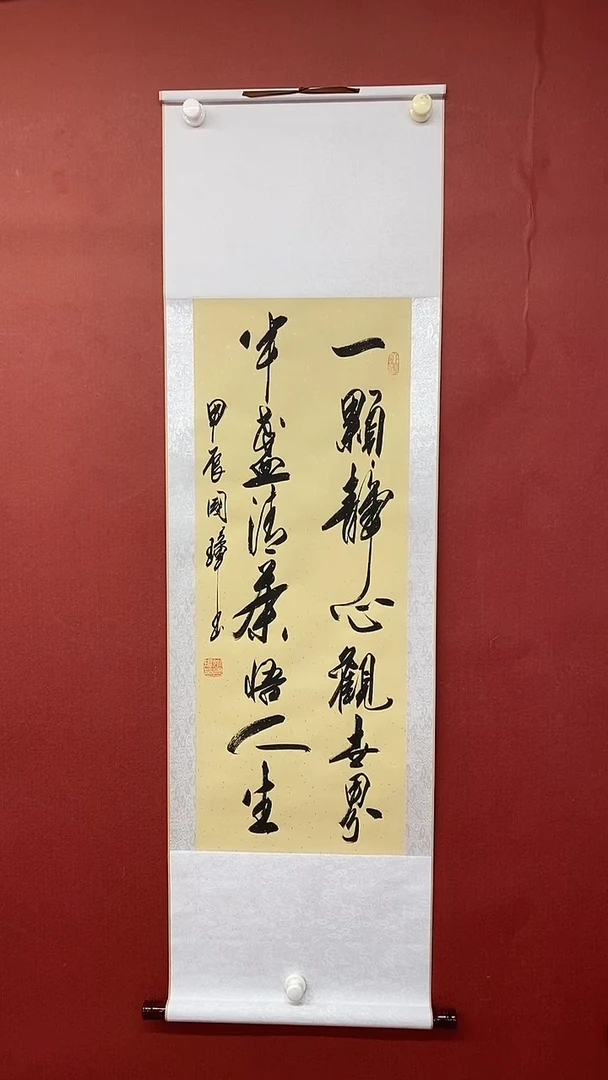 一顆靜心觀世界
半盞清茶悟人生
甲辰國璋书